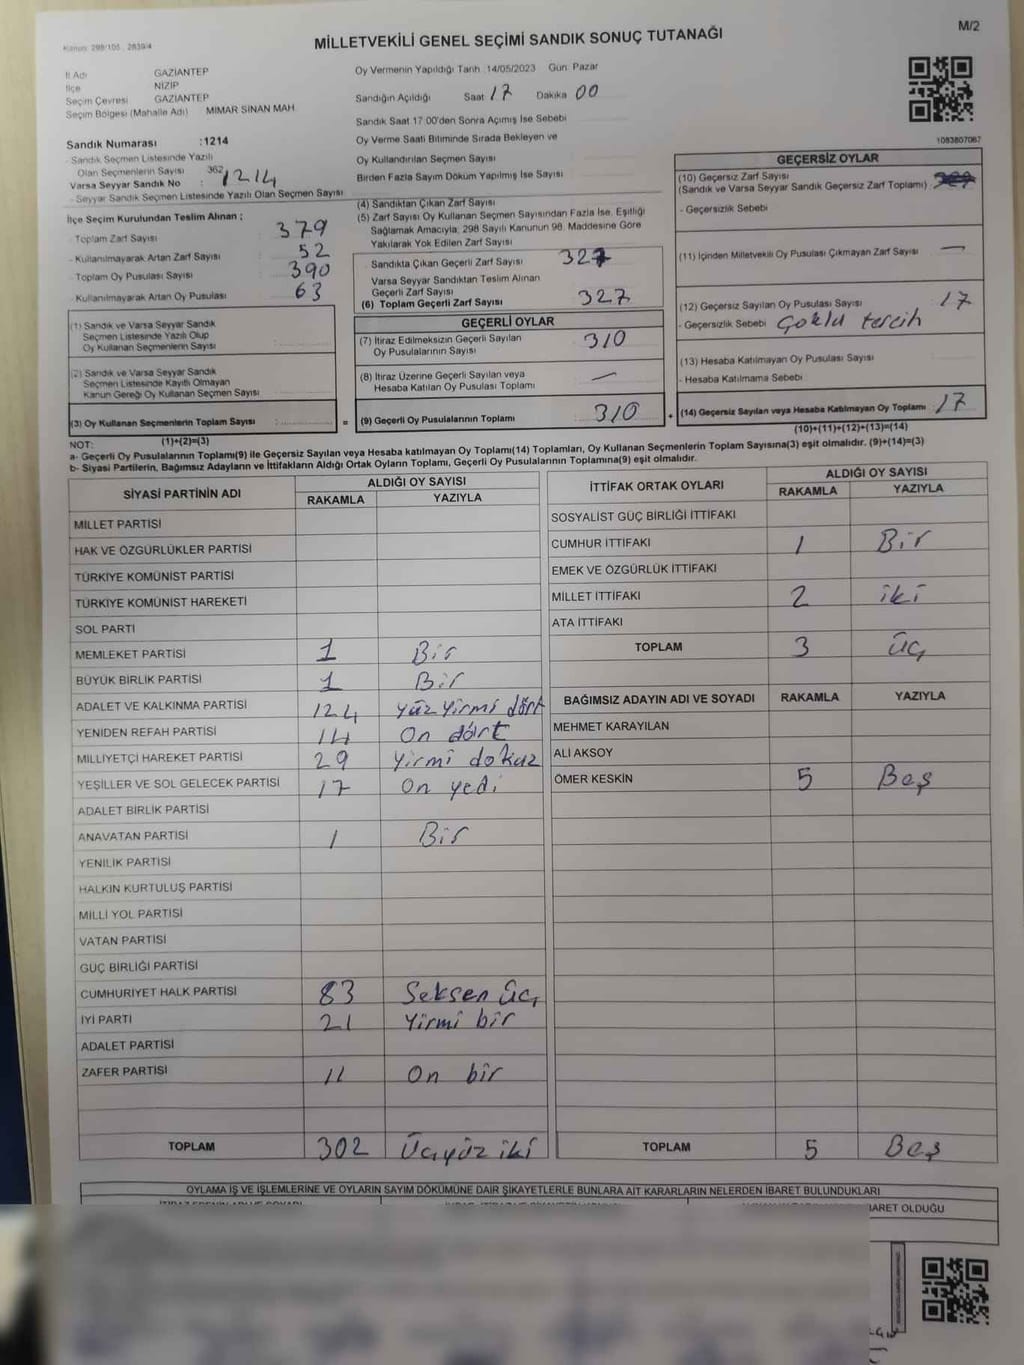 M/2
Kanun: 298/105 , 2839/4
MİLLETVEKİLİ GENEL SEÇİMİ SANDIK SONUÇ TUTANAĞI
İl Adı GAZİANTEP
İlçe NİZİP
Seçim Çevresi GAZİANTEP
Seçim Bölgesi (Mahalle Adı) MIMAR SINAN MAH
Sandık Numarası :1214
- Sandık Seçmen Listesinde Yazılı
Olan Seçmenlerin Sayısı 362
Varsa Seyyar Sandık No : 1214
- Seyyar Sandık Seçmen Listesinde Yazılı Olan Seçmen Sayısı
İlçe Seçim Kurulundan Teslim Alınan ;
- Toplam Zarf Sayısı : 379
- Kullanılmayarak Artan Zarf Sayısı : 52
- Toplam Oy Pusulası Sayısı : 390
- Kullanılmayarak Artan Oy Pusulası : 63
(1) Sandık ve Varsa Seyyar Sandık
Seçmen Listesinde Yazılı Olup
Oy Kullanan Seçmenlerin Sayısı
(2) Sandık ve Varsa Seyyar Sandık
Seçmen Listesinde Kayıtlı Olmayan
Kanun Gereği Oy Kullanan Seçmen Sayısı
(3) Oy Kullanan Seçmenlerin Toplam Sayısı : =
(1)+(2)=(3)
Oy Vermenin Yapıldığı Tarih :14/05/2023 Gün: Pazar
Sandığın Açıldığı Saat 17 Dakika 00
Sandık Saat 17.00'den Sonra Açımış İse Sebebi
Oy Verme Saati Bitiminde Sırada Bekleyen ve
Oy Kullandırılan Seçmen Sayısı
Birden Fazla Sayım Döküm Yapılmış İse Sayısı
(4) Sandıktan Çıkan Zarf Sayısı
(5) Zarf Sayısı Oy Kullanan Seçmen Sayısından Fazla İse, Eşitliği
Sağlamak Amacıyla; 298 Sayılı Kanunun 98. Maddesine Göre
Yakılarak Yok Edilen Zarf Sayısı
Sandıkta Çıkan Geçerli Zarf Sayısı 327
Varsa Seyyar Sandıktan Teslim Alınan
Geçerli Zarf Sayısı
(6) Toplam Geçerli Zarf Sayısı 327
GEÇERLİ OYLAR
(7) İtiraz Edilmeksizin Geçerli Sayılan
Oy Pusulalarının Sayısı 310
(8) İtiraz Üzerine Geçerli Sayılan veya
Hesaba Katılan Oy Pusulası Toplamı —
(9) Geçerli Oy Pusulalarının Toplamı 310 +
1083807067
GEÇERSİZ OYLAR
(10) Geçersiz Zarf Sayısı
(Sandık ve Varsa Seyyar Sandık Geçersiz Zarf Toplamı)
- Geçersizlik Sebebi
(11) İçinden Milletvekili Oy Pusulası Çıkmayan Zarf Sayısı —
(12) Geçersiz Sayılan Oy Pusulası Sayısı 17
- Geçersizlik Sebebi Çoklu tercih
(13) Hesaba Katılmayan Oy Pusulası Sayısı
- Hesaba Katılmama Sebebi
(14) Geçersiz Sayılan veya Hesaba Katılmayan Oy Toplamı 17
(10)+(11)+(12)+(13)=(14)
NOT:
a- Geçerli Oy Pusulalarının Toplamı(9) ile Geçersiz Sayılan veya Hesaba katılmayan Oy Toplamı(14) Toplamları, Oy Kullanan Seçmenlerin Toplam Sayısına(3) eşit olmalıdır. (9)+(14)=(3)
b- Siyasi Partilerin, Bağımsız Adayların ve İttifakların Aldığı Ortak Oyların Toplamı, Geçerli Oy Pusulalarının Toplamına(9) eşit olmalıdır.
SİYASİ PARTİNİN ADI ALDIĞI OY SAYISI
RAKAMLA YAZIYLA
MİLLET PARTİSİ
HAK VE ÖZGÜRLÜKLER PARTİSİ
TÜRKİYE KOMÜNİST PARTİSİ
TÜRKİYE KOMÜNİST HAREKETİ
SOL PARTİ
MEMLEKET PARTİSİ 1 Bir
BÜYÜK BİRLİK PARTİSİ 1 Bir
ADALET VE KALKINMA PARTİSİ 124 yüz yirmi dört
YENİDEN REFAH PARTİSİ 14 On dört
MİLLİYETÇİ HAREKET PARTİSİ 29 yirmi dokuz
YEŞİLLER VE SOL GELECEK PARTİSİ 17 On yedi
ADALET BİRLİK PARTİSİ
ANAVATAN PARTİSİ 1 Bir
YENİLİK PARTİSİ
HALKIN KURTULUŞ PARTİSİ
MİLLİ YOL PARTİSİ
VATAN PARTİSİ
GÜÇ BİRLİĞİ PARTİSİ
CUMHURİYET HALK PARTİSİ 83 Seksen üç
İYİ PARTİ 21 yirmi bir
ADALET PARTİSİ
ZAFER PARTİSİ 11 On bir
TOPLAM 302 Üçyüz iki
İTTİFAK ORTAK OYLARI ALDIĞI OY SAYISI
RAKAMLA YAZIYLA
SOSYALİST GÜÇ BİRLİĞİ İTTİFAKI
CUMHUR İTTİFAKI 1 Bir
EMEK VE ÖZGÜRLÜK İTTİFAKI
MİLLET İTTİFAKI 2 iki
ATA İTTİFAKI
TOPLAM 3 üç
BAĞIMSIZ ADAYIN ADI VE SOYADI RAKAMLA YAZIYLA
MEHMET KARAYILAN
ALİ AKSOY
ÖMER KESKİN 5 Beş
TOPLAM 5 Beş
OYLAMA İŞ VE İŞLEMLERİNE VE OYLARIN SAYIM DÖKÜMÜNE DAİR ŞİKAYETLERLE BUNLARA AİT KARARLARIN NELERDEN İBARET BULUNDUKLARI
İBARET OLDUĞU